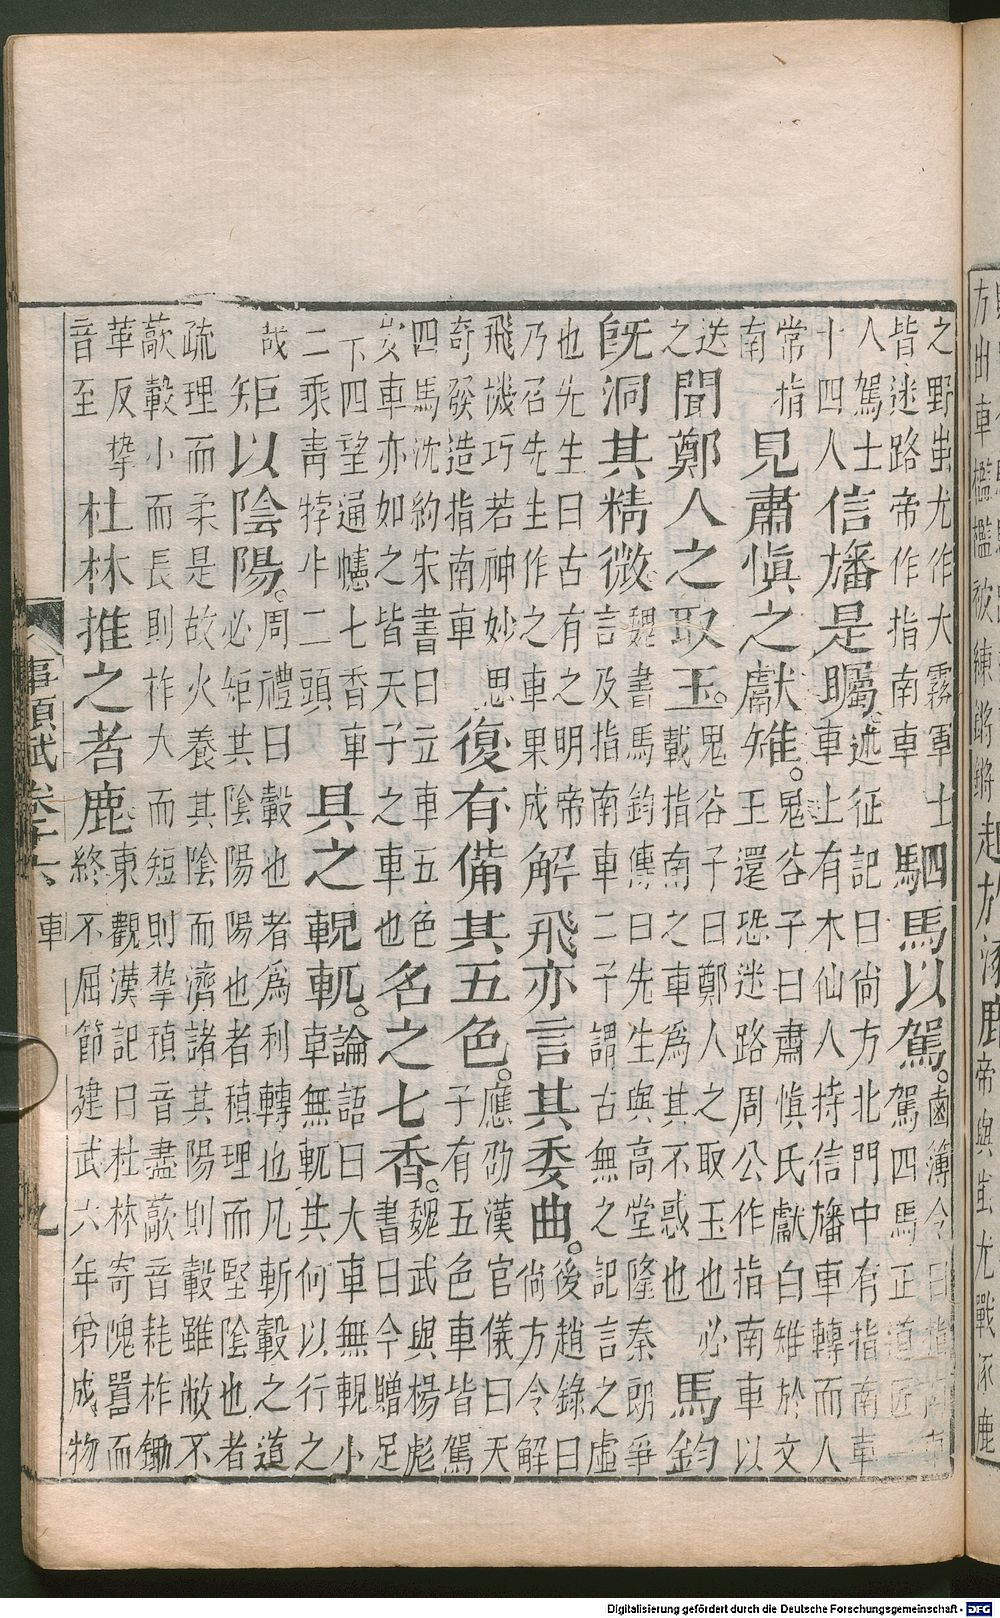 方出車檻檻被練鏘鏘起於涿鹿帝與蚩尤戰涿鹿
之野蚩尤作大霧軍士皆迷路帝作指南車駟馬以駕。鹵簿令曰指南車駕四馬正道匠
人駕士十四人信旛是矚。述征記曰尚方北門中有指南車車上有木仙人持信旛車轉而人
常指南見肅慎之獻雉。鬼谷子曰肅慎氏獻白雉於文王還恐迷路周公作指南車以
送之聞鄭人之取玉。鬼谷子曰鄭人之取玉也必載指南之車為其不惑也馬鈞
旣洞其精微魏書馬鈞傳曰先生與高堂隆秦朗爭言及指南車二子謂古無之記言之虛
也先生曰古有之明帝乃召先生作之車果成解飛亦言其委曲。後趙錄曰尚方令解
飛機巧若神妙思奇發造指南車復有備其五色。應劭漢官儀曰天子有五色車皆駕
四馬沈約宋書曰立車五色安車亦如之皆天子之車也名之七香。魏武與楊彪書曰今贈足
下四望通幰七香車二乘青牸牛二頭具之輗軏。論語曰大車無輗小車無軏其何以行之
哉矩以陰陽。周禮曰轂也者為利轉也凡斬轂之道必矩其陰陽陽也者稹理而堅陰也者
疏理而柔是故火養其陰而濟諸其陽則轂雖敝不藃轂小而長則柞大而短則摯稹音盡藃音耗柞鋤
革反摯音至杜林推之者鹿東觀漢記曰杜林寄隗囂而終不屈節建武六年弟成物
事類賦卷十六 車 九
Digitalisierung gefördert durch die Deutsche Forschungsgemeinschaft - DFG